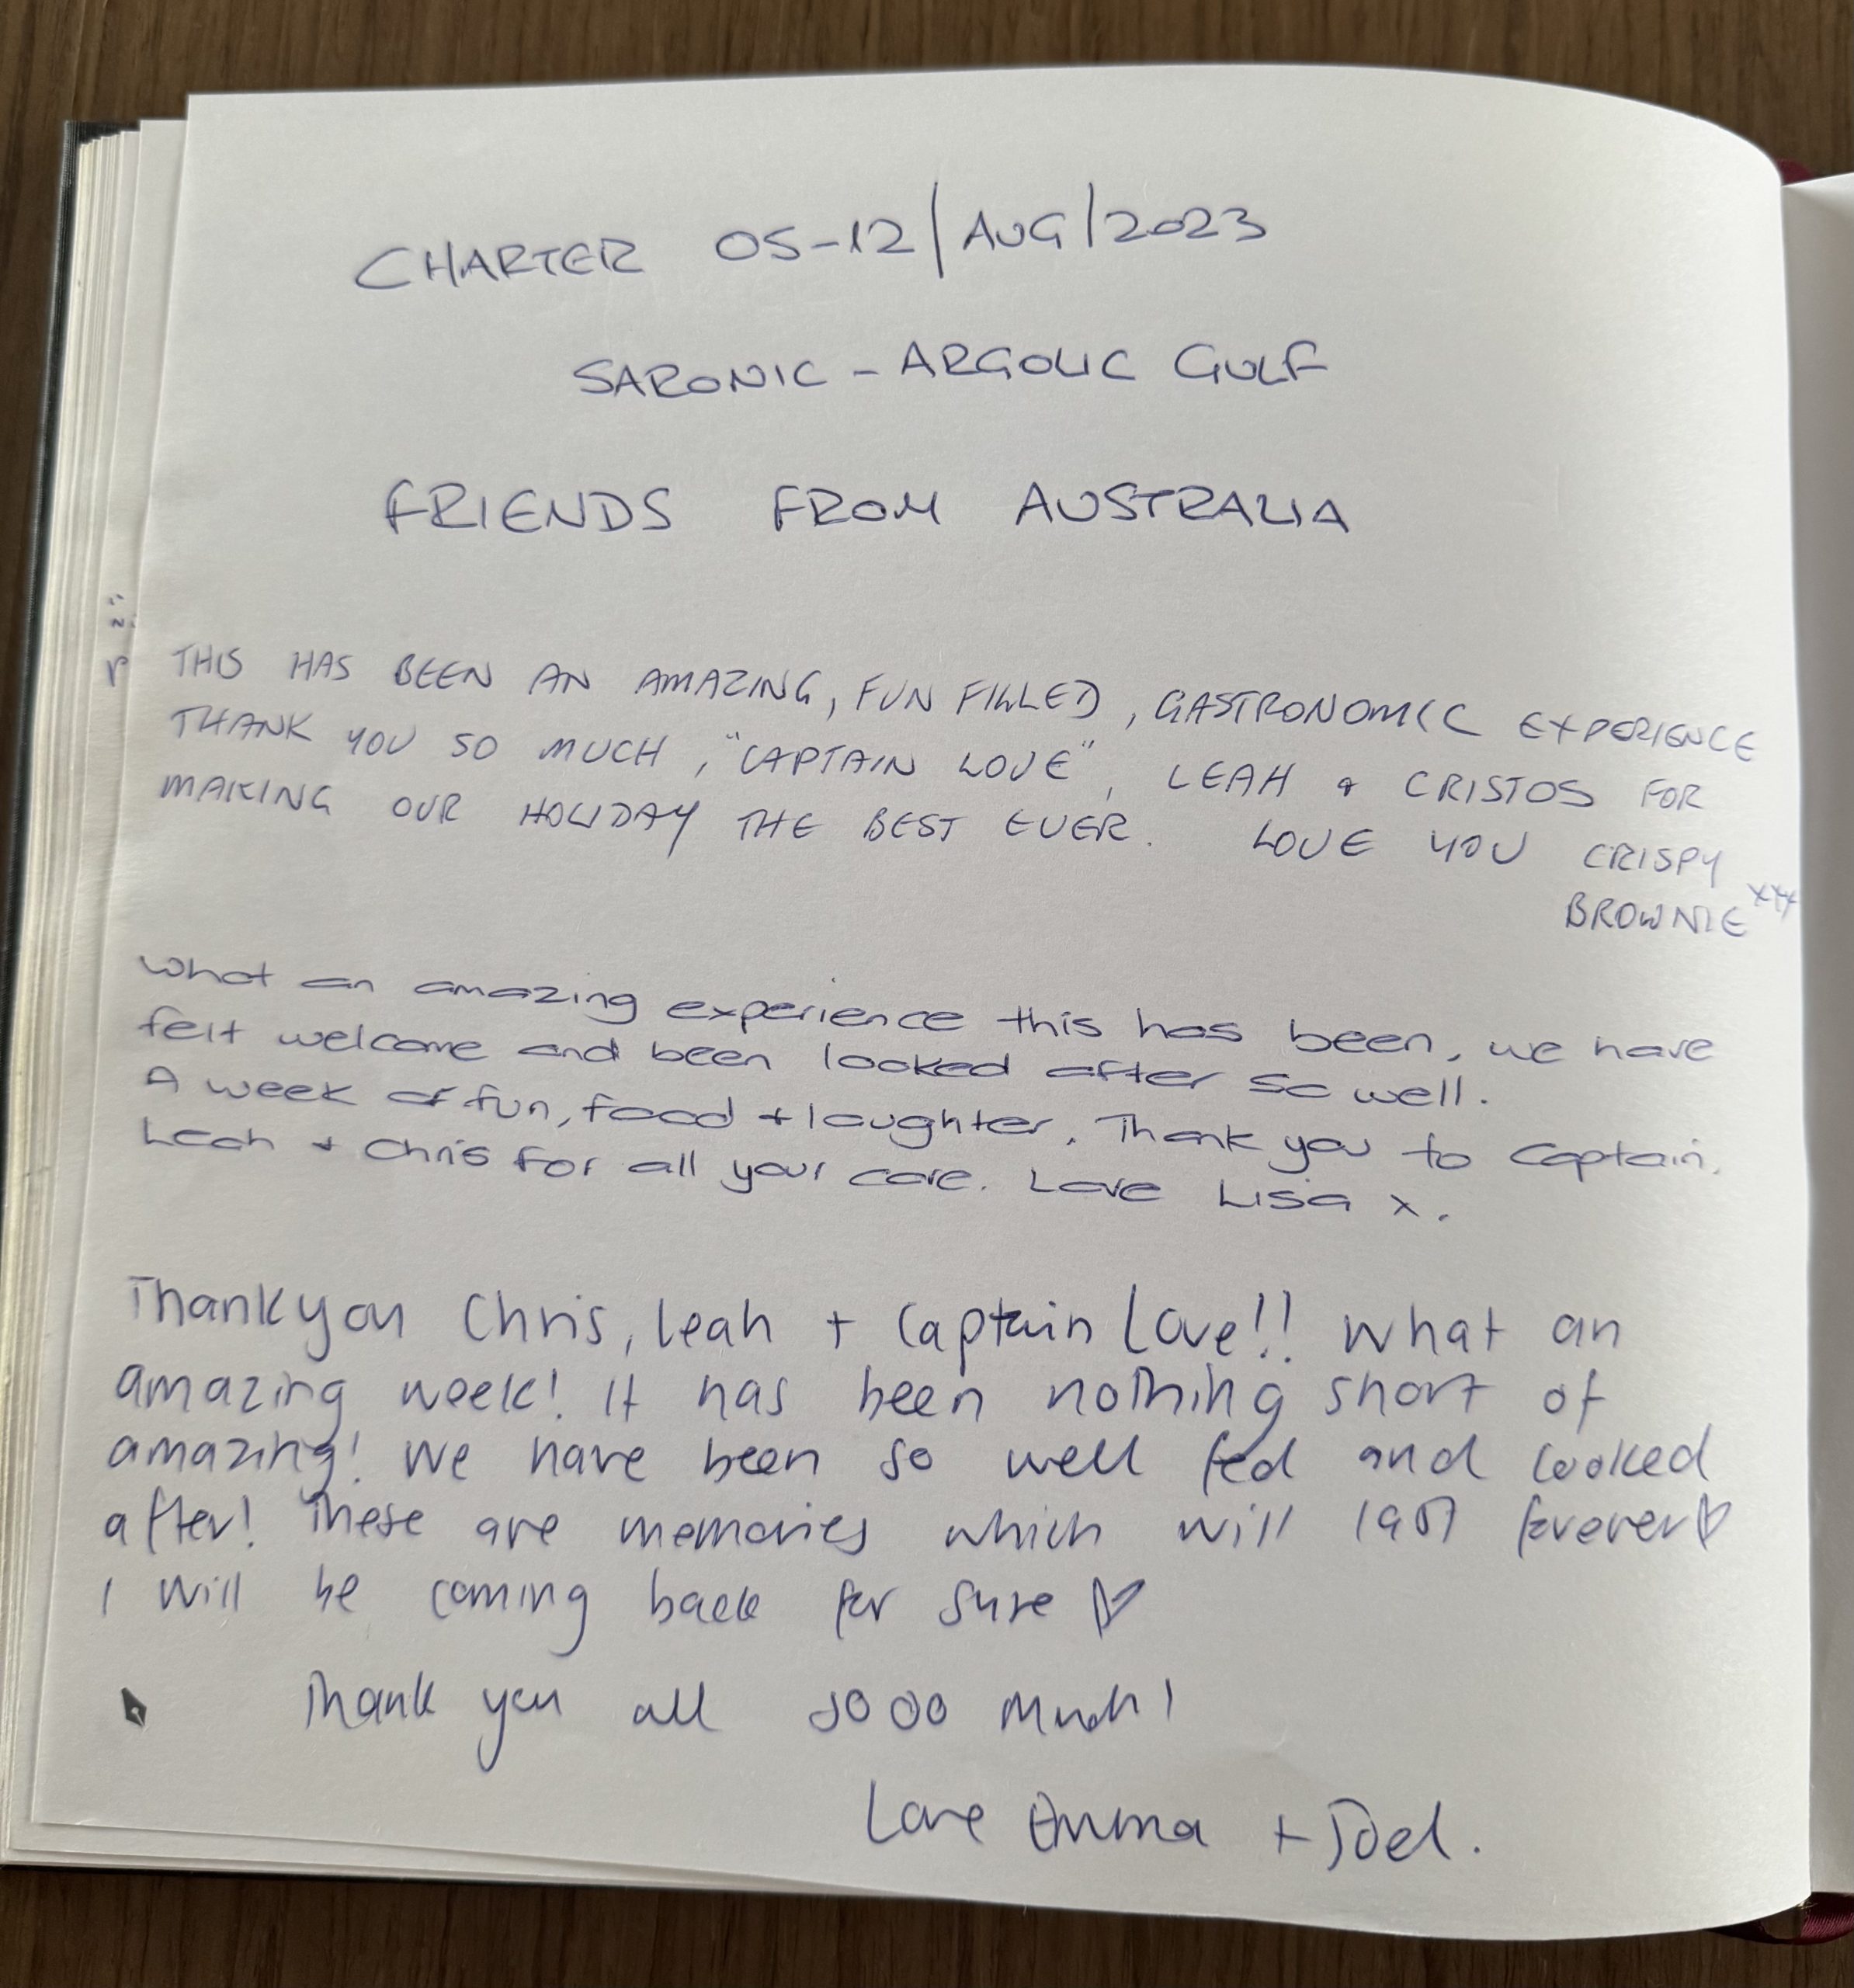 CHARTER 05-12/AUG/2023
SARONIC - ARGOLIC GULF
FRIENDS FROM AUSTRALIA
THIS HAS BEEN AN AMAZING, FUN FILLED, GASTRONOMIC EXPERIENCE
THANK YOU SO MUCH, "CAPTAIN LOVE", LEAH & CRISTOS FOR
MAKING OUR HOLIDAY THE BEST EVER. LOVE YOU CRISPY
BROWNIE xxx
What an amazing experience this has been, we have
felt welcome and been looked after so well.
A week of fun, food + laughter. Thank you to Captain,
Leah + Chris for all your care. Love Lisa x.
Thankyou Chris, Leah + Captain Love!! What an
amazing week! It has been nothing short of
amazing! We have been so well fed and looked
after! These are memories which will last forever♡
I will be coming back for sure ♡
Thank you all sooo much!
Love Emma + Joel.